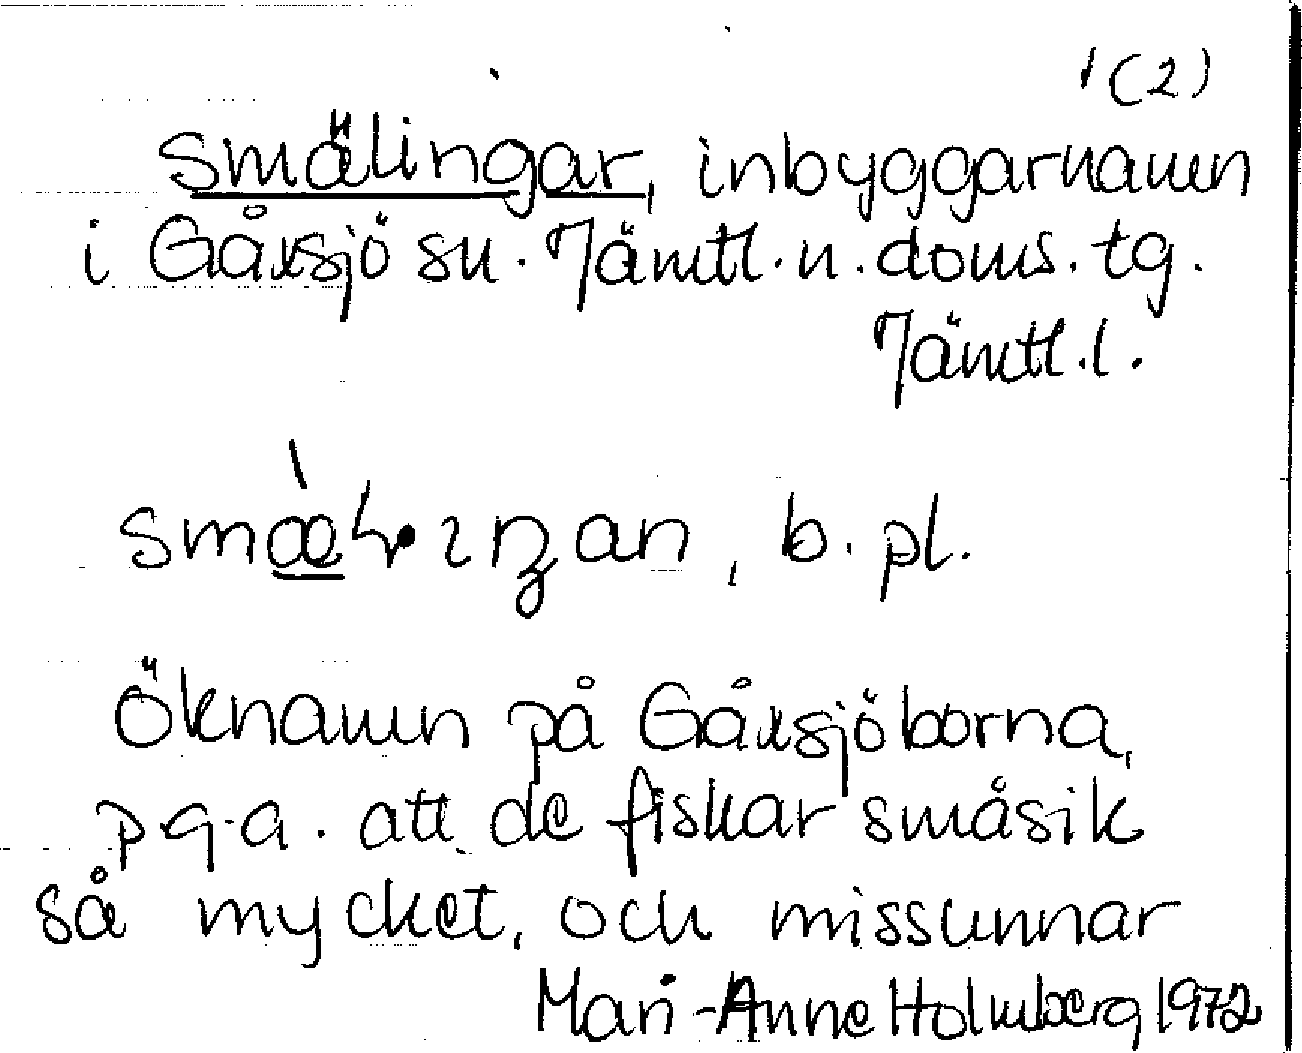 1(2)
smälingar, inbyggarnamn
i Gåxsjö sn. Jämtl. n. doms. tg.
Jämtl. l.
b. pl.
Öknamn på Gåxsjöborna,
p.g.a. att de fiskar småsik
så mycket, och missunnar
Mari-Anne Holmberg 1972